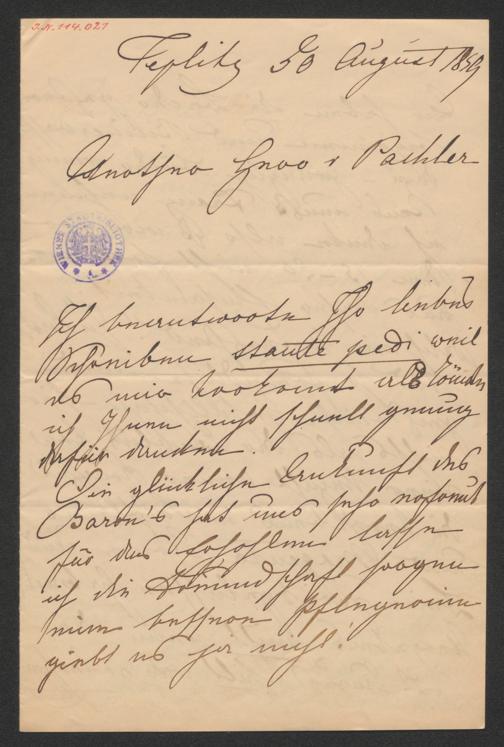 J.N. 114.021
Teplitz 30 August 1859
Verehrter Herr v Pachler
WIENER STADTBIBLIOTHEK
Ich beantworte Ihr liebes
Schreiben stante pedi weil
es mir vorkomt als könnte
ich Ihnen nicht schnell genug
dafür danken.
Die glückliche Ankunft des
Baron's hat uns sehr erfreut
für das
ich die Freundschaft sorgen
einen bessren Pflegvater
giebt es ja nicht!